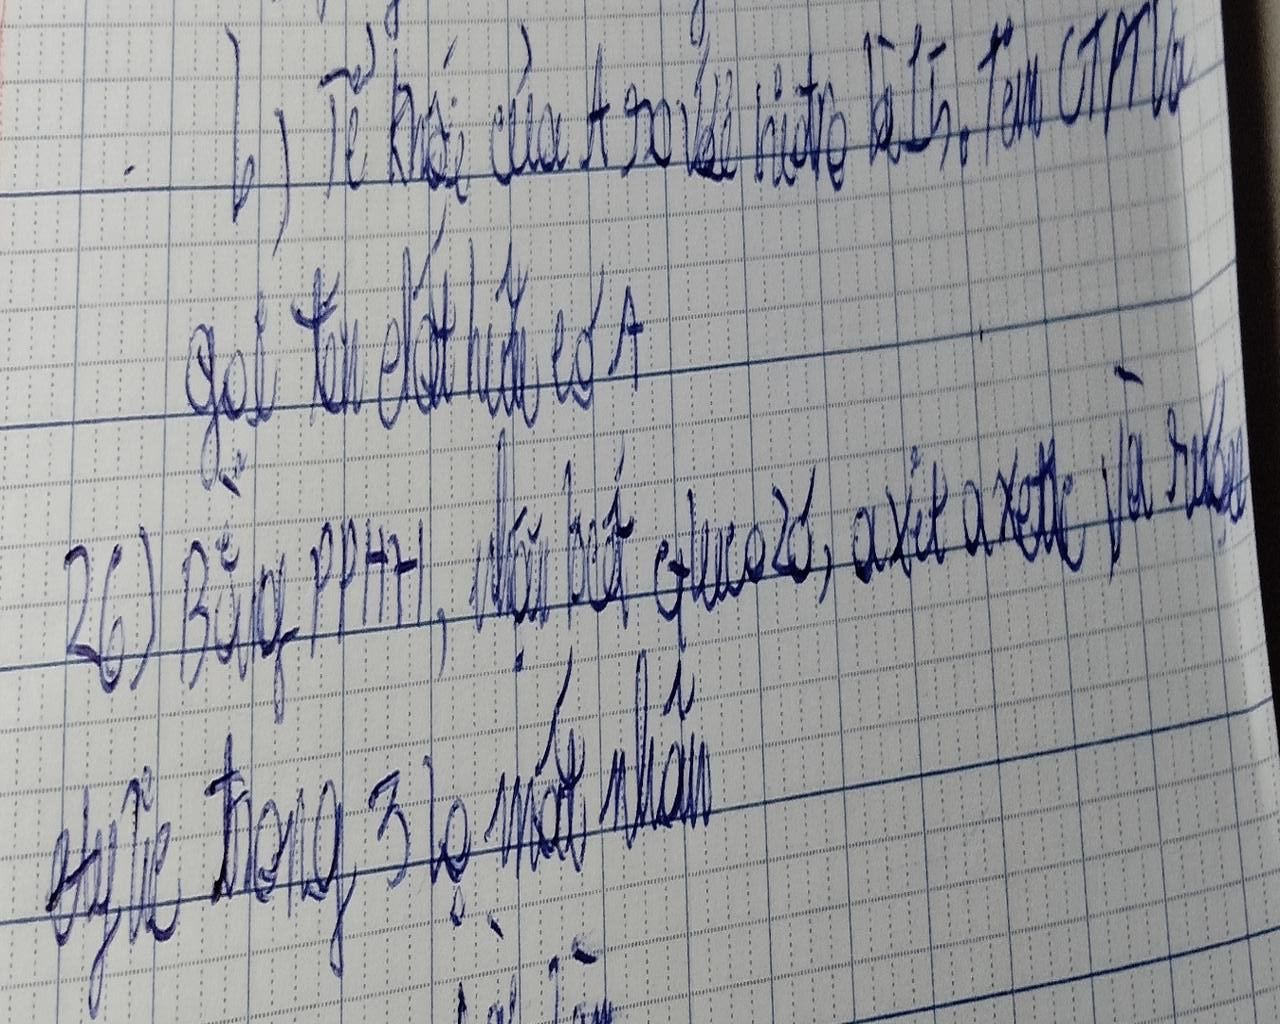 b) Tỉ khối của A so với hiđro là 15. Tìm CTPT và
gọi tên chất hữu cơ A
26) Bằng PPHH, nhận biết glucozơ, axit axetic và rượu
etylic trong 3 lọ mất nhãn